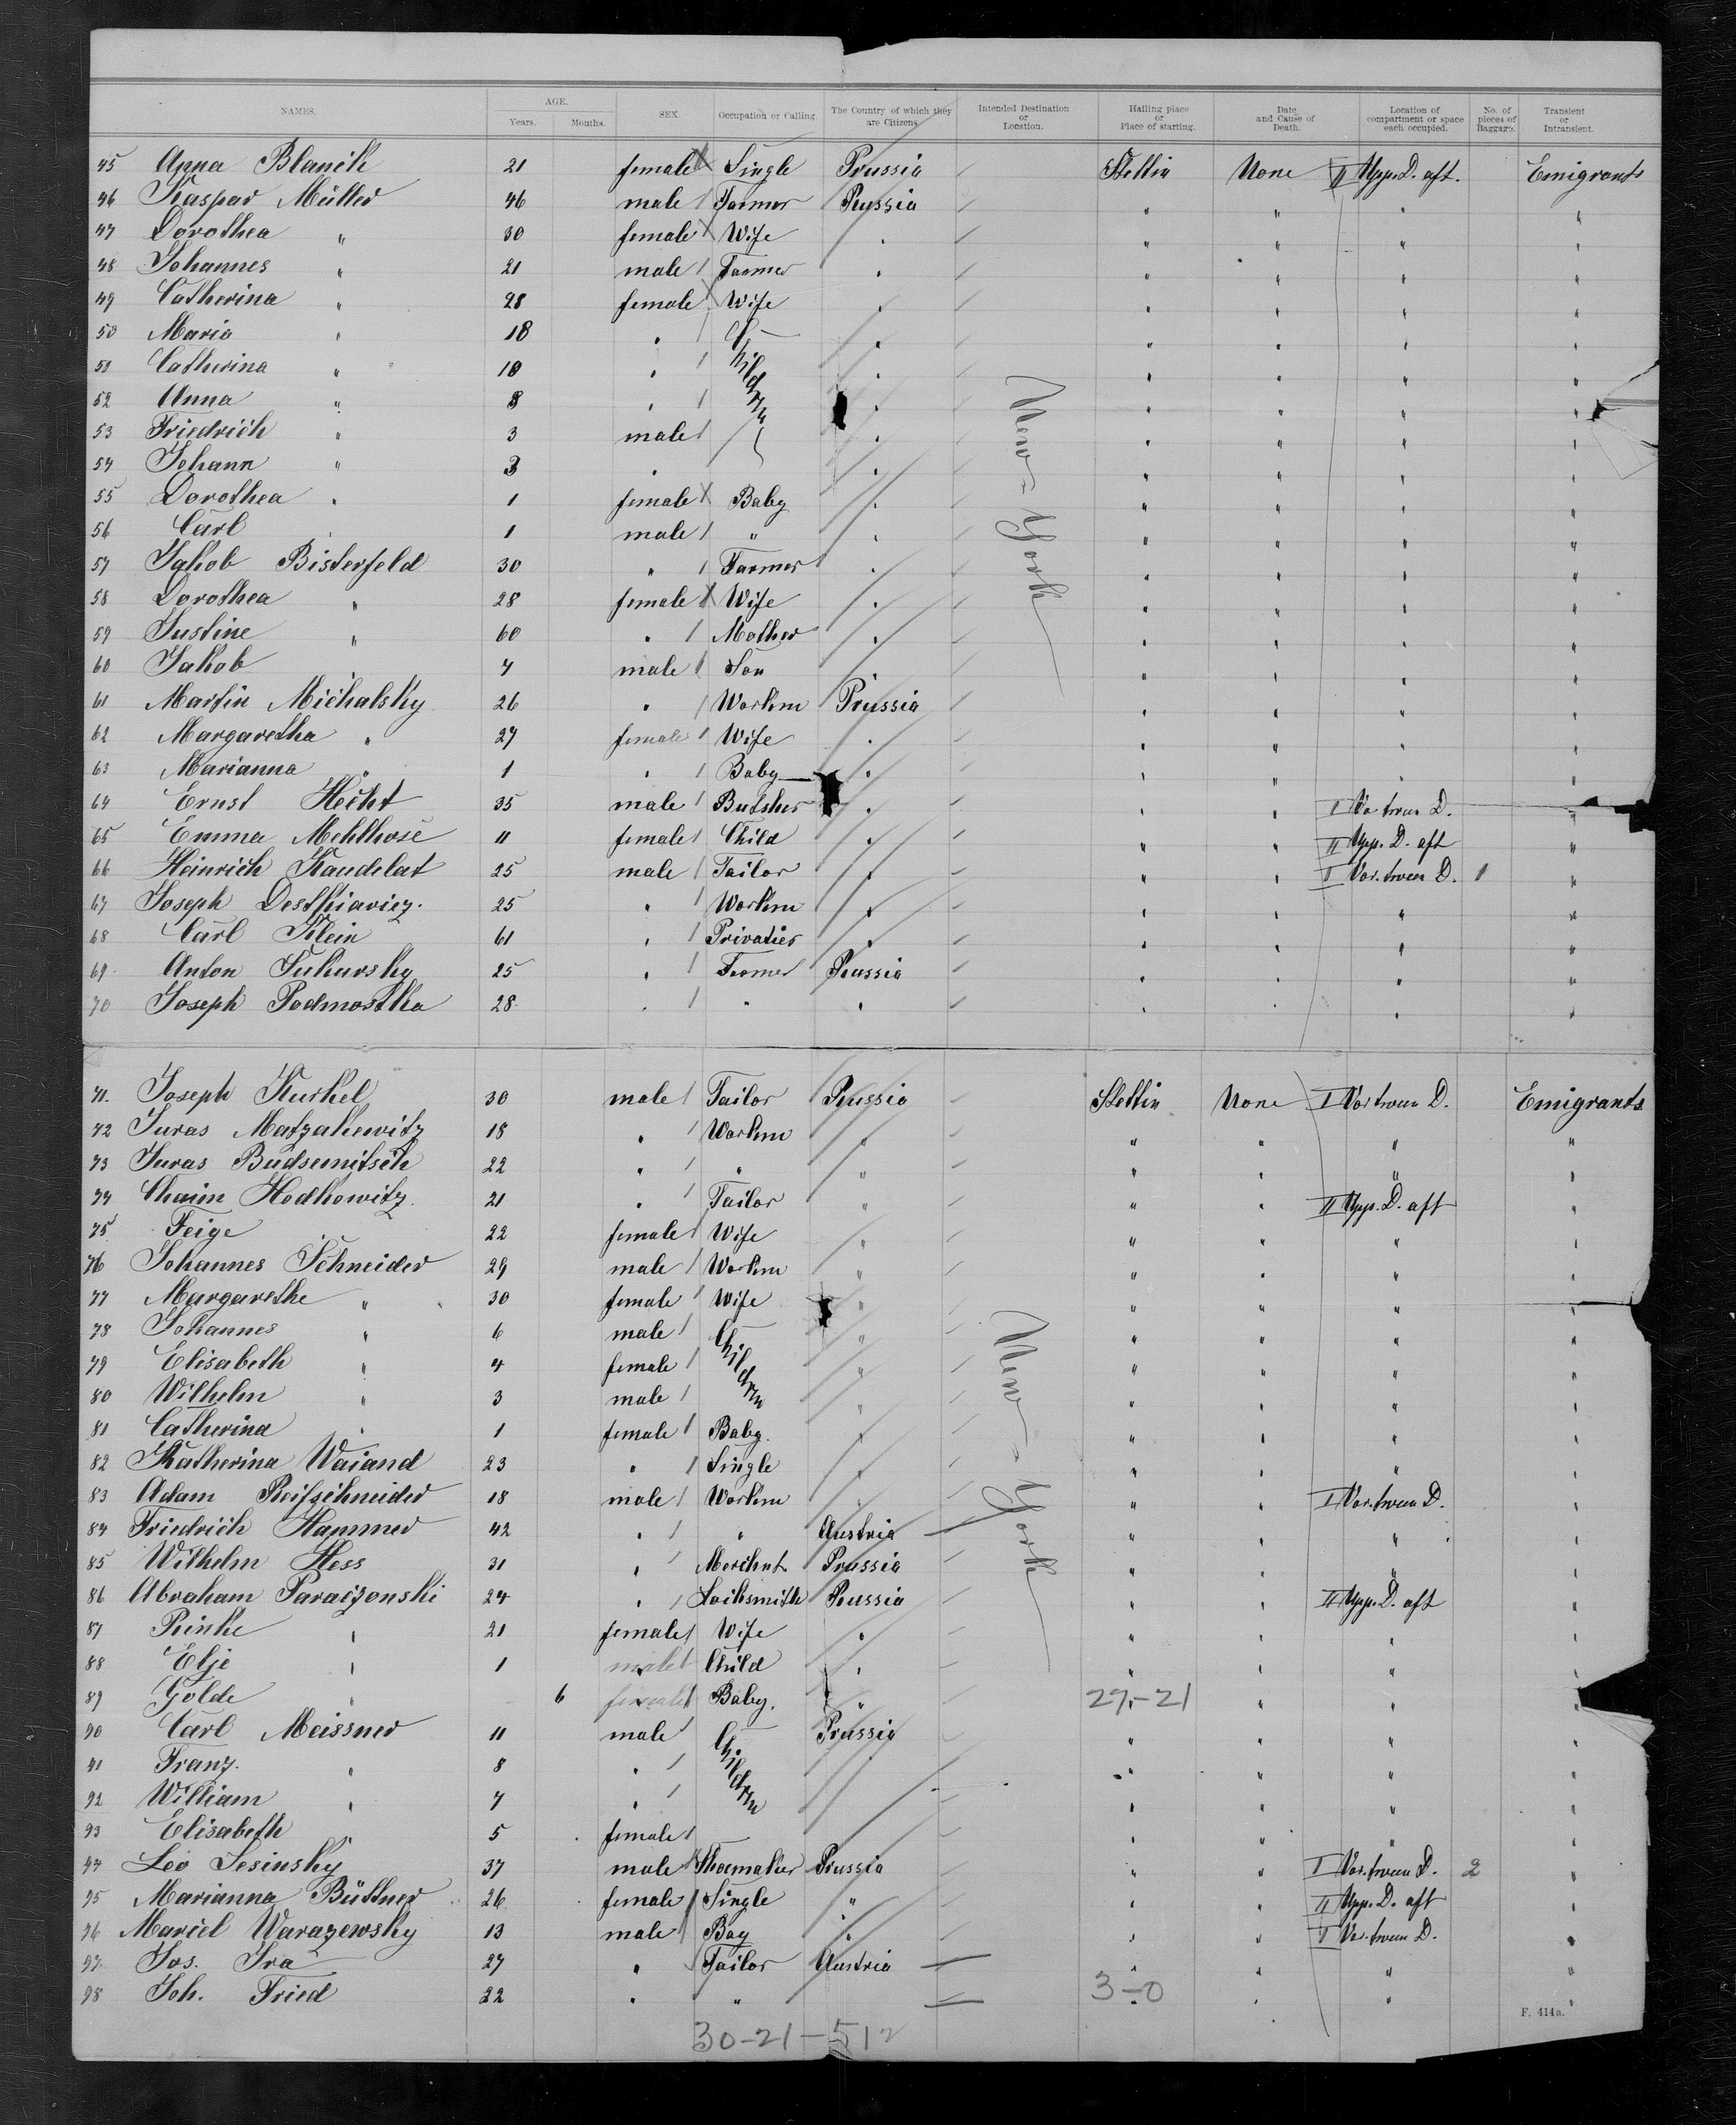 NAMES. AGE. Years. Months. SEX. Occupation or Calling. The Country of which they are Citizens Intended Destination or Location. Hailing place or Place of starting. Date and Cause of Death. Location of compartment or space each occupied. No. of pieces of Baggage. Transient or Intransient.
45 Anna Blanck 21 female Single Prussia Stettin None II Upp. D. aft. Emigrants
46 Kaspar Müller 46 male Farmer Russia " " " "
47 Dorothea " 30 female Wife " " " " "
48 Johannes " 21 male Farmer " " " " "
49 Catherina " 28 female Wife " " " " "
50 Maria " 18 " Children " " " " "
51 Catherina " 10 " " " " " "
52 Anna " 8 " " " " " "
53 Friedrich " 3 male " " " " "
54 Johann " 3 " " " " " "
55 Dorothea " 1 female Baby " " " " "
56 Carl " 1 male " " " " " "
57 Jakob Bisterfeld 30 " Farmer " " " " "
58 Dorothea " 28 female Wife " " " " "
59 Justine " 60 " Mother " " " " "
60 Jakob " 7 male Son " " " " "
61 Martin Michalsky 26 " Workm Prussia " " " "
62 Margaretha " 27 female Wife " " " " "
63 Marianna " 1 " Baby " " " " "
64 Ernst Hecht 35 male Butsher " " " I D. "
65 Emma Mehlhose 11 female Child " " " II Upp. D. aft "
66 Heinrich Kaudelat 25 male Tailor " " " I D. 1 "
67 Joseph 25 " Workm " " " " "
68 Carl Klein 61 " Privatier " " " " "
69 Anton 25 " Farmer Russia " " " "
70 Joseph Podmostka 28 " " " " " " "
New-York
71. Joseph Kurkel 30 male Tailor Russia Stettin None I D. Emigrants
72 Juras Matzakewitz 18 " Workm " " " " "
73 Juras Budsemitsch 22 " " " " " " "
74 Chaim Hodkowitz 21 " Tailor " " " II Upp. D. aft "
75 Feige " 22 female Wife " " " " "
76 Johannes Schneider 29 male Workm " " " " "
77 Margarethe " 30 female Wife " " " " "
78 Johannes " 6 male Children " " " " "
79 Elisabeth " 4 female " " " " "
80 Wilhelm " 3 male " " " " "
81 Catherina " 1 female Baby. " " " " "
82 Katherina Waiand 23 " Single " " " " "
83 Adam Reifschneider 18 male Workm " " " I D. "
84 Friedrich Hammer 42 " " Austria " " " "
85 Wilhelm Hess 31 " Merchnt Prussia " " " "
86 Abraham 24 " Locksmith Russia " " II Upp. D. aft "
87 Rinke " 21 female Wife " " " " "
88 Elje " 1 male Child " " " " "
89 Golde " 6 female Baby. " 27-21 " " "
90 Carl Meissner 11 male Children Prussia " " " "
91 Franz " 8 " " " " "
92 William " 7 " " " " "
93 Elisabeth " 5 female " " " "
94 Leo Lesinsky 37 male Shoemaker Prussia " " I D. 2 "
95 Marianna Büttner 26 female Single " " " II Upp. D. aft "
96 Marcel Warazewsky 13 male Boy " " " I D. "
97. Jos. 27 " Tailor Austria " " " "
98 Joh. Fried 22 " " 3-0 " " "
New-York
F. 414a.
30-21-512